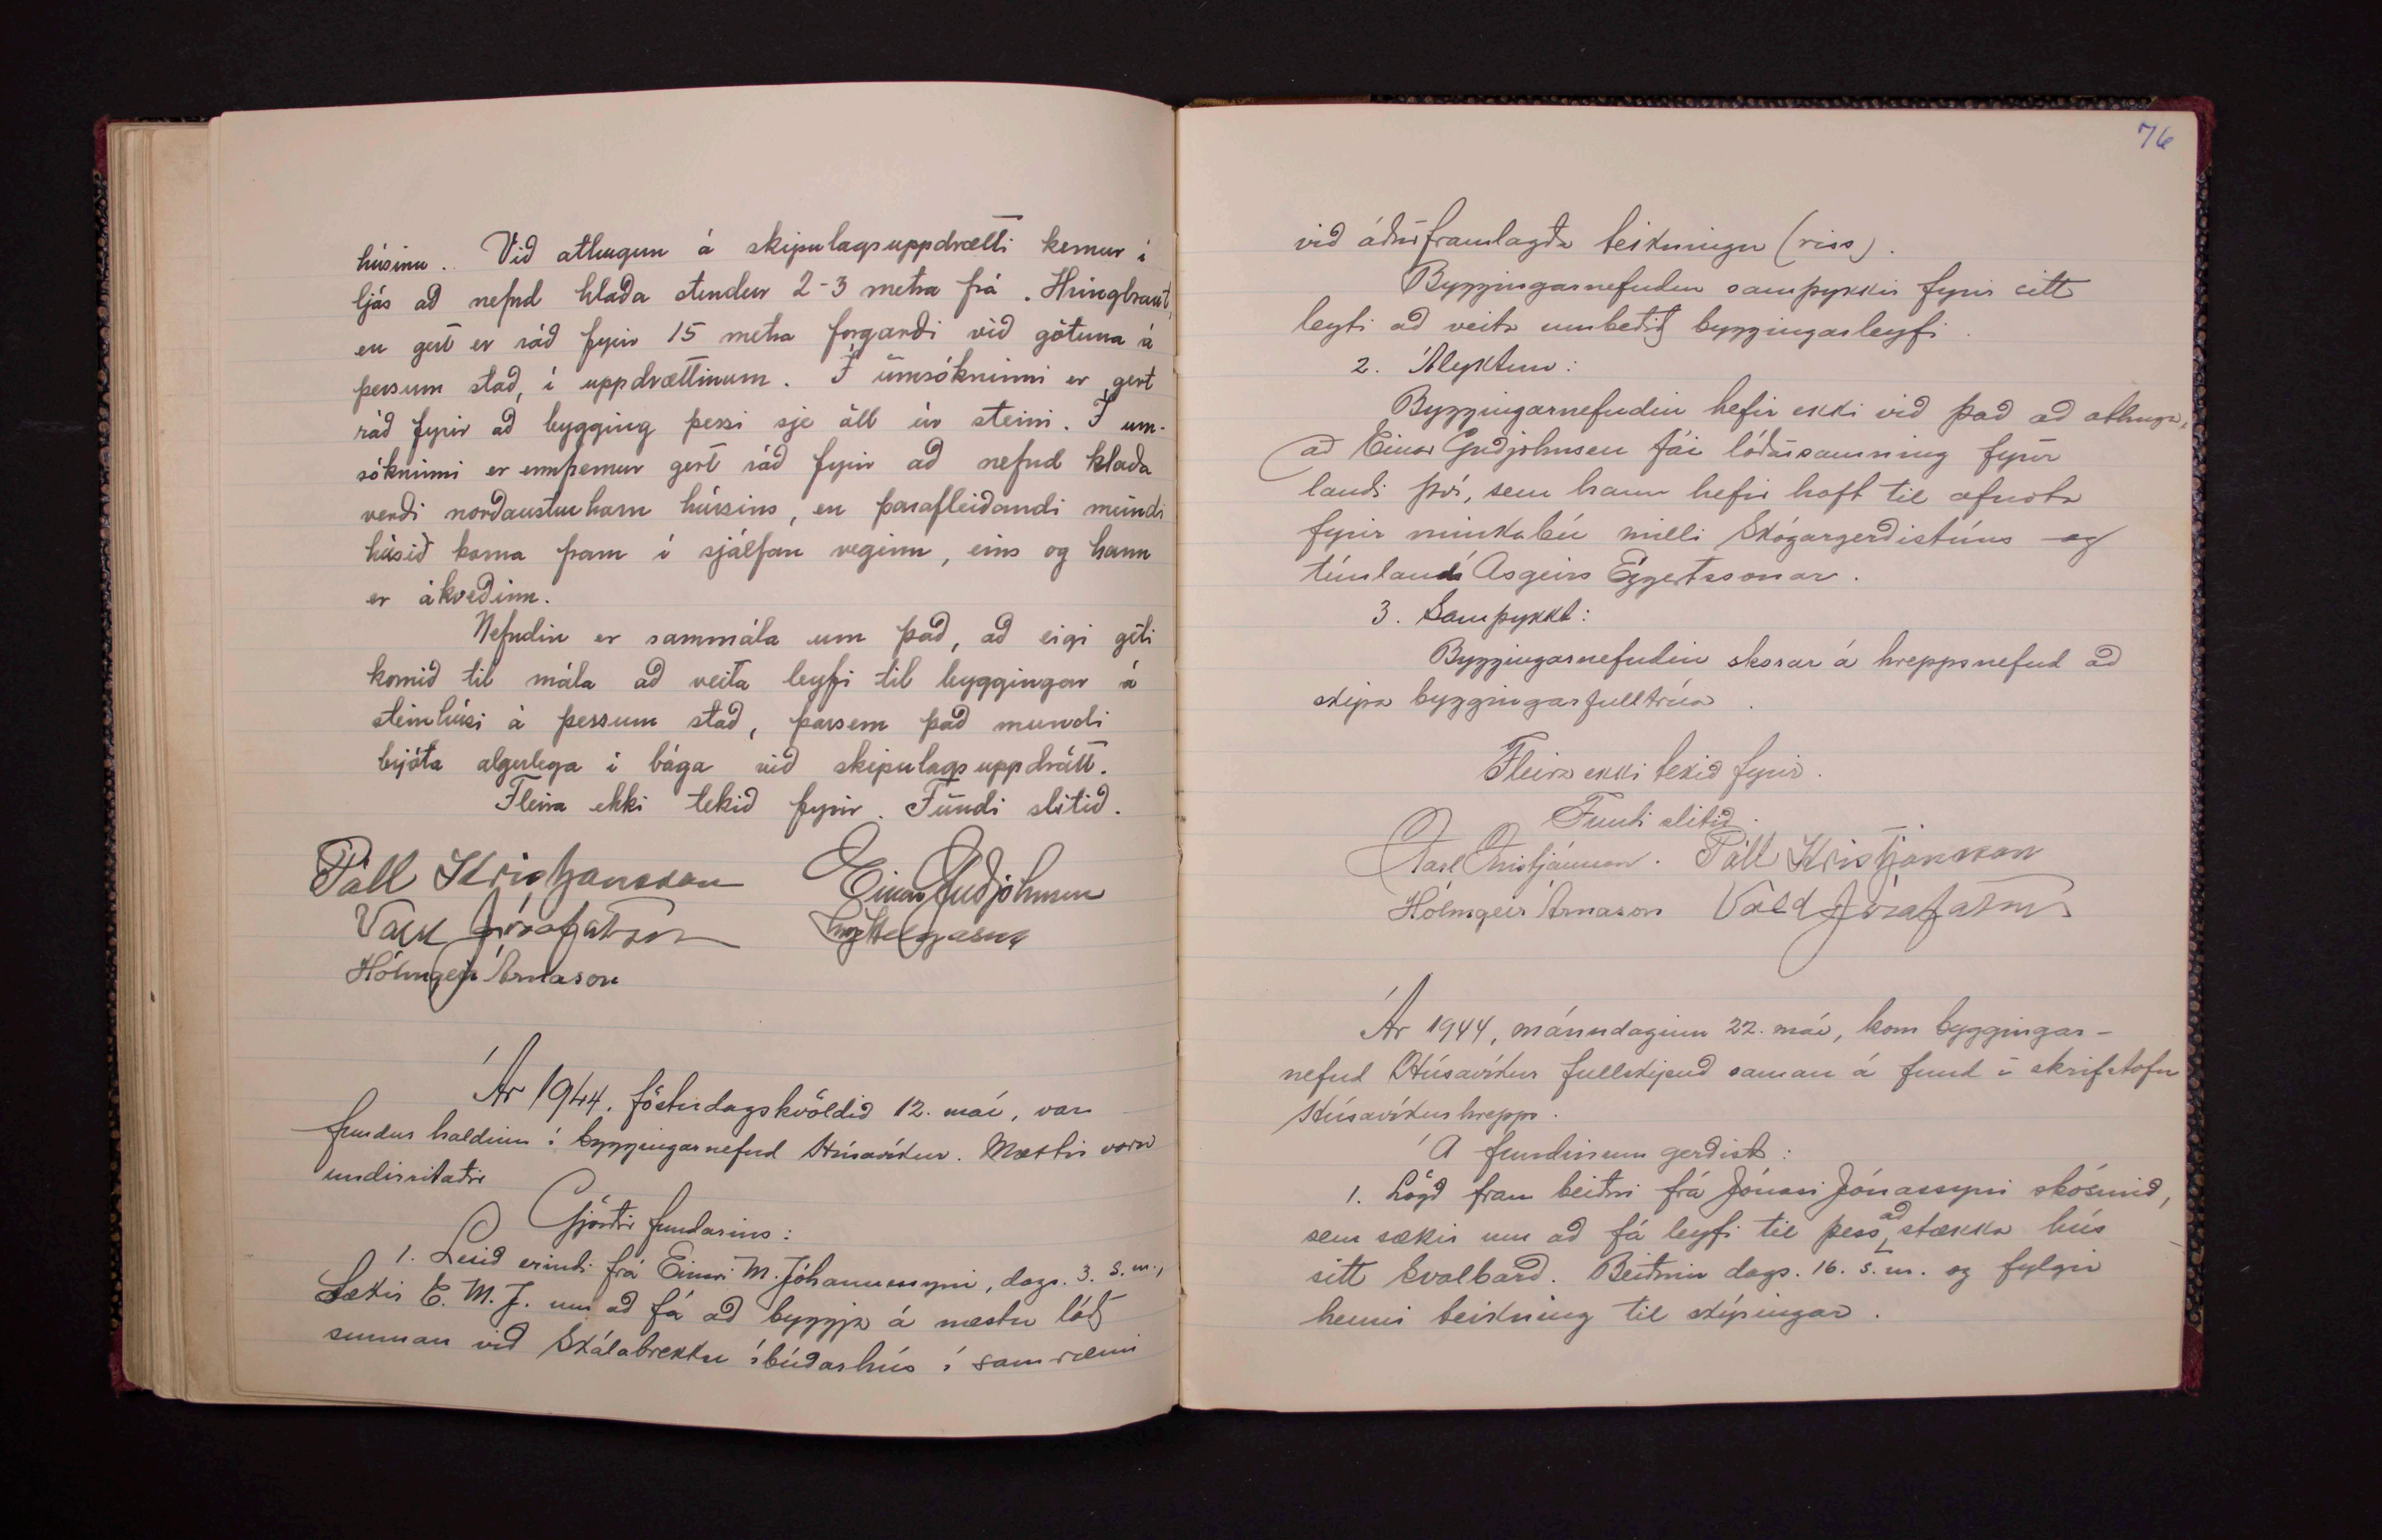 húsinu. Við athugun á skipulagsuppdrætti kemur í
ljós að nefnd hlaða stendur 2-3 metra frá Hringbraut,
en gert er ráð fyrir 15 metra forgarði við götuna á
þessum stað, í uppdrættinum. Í umsókninni er gert
ráð fyrir að bygging þessi sje öll úr steini. Í um-
sókninni er ennfremur gert ráð fyrir að nefnd hlaða
verði norðausturhorn hússins, en þarafleiðandi mundi
húsið koma fram í sjálfan veginn, eins og hann
er ákveðinn.
Nefndin er sammála um það, að eigi geti
komið til mála að veita leyfi til byggingar á
steinhúsi á þessum stað, þarsem það mundi
brjóta algerlega í bága við skipulagsuppdrátt.
Fleira ekki tekið fyrir. Fundi slitið.
Páll Kristjánsson Einar Guðjohnsen
Vald Jósafatsson Helgason
Hólmgeir Árnason
Ár 1944, föstudagskvöldið 12. maí, var
fundur haldinn í byggingarnefnd Húsavíkur. Mættir voru
undirritaðir
Gjörðir fundarins:
1. Lesið erindi frá Einari M. Jóhannessyni, dags. 3. s.m.,
Sækir E. M. J. um að fá að byggja á næstu lóð
sunnan við Skálabrekku íbúðarhús í samræmi
76
við áður framlagða teikningu (riss).
Byggingarnefndin samþykkir fyrir sitt
leyti að veita umbeðið byggingarleyfi.
2. Ályktun:
Byggingarnefndin hefir ekki við það að athuga,
að Einar Guðjohnsen fái lóðarsamning fyrir
landi því, sem hann hefir haft til afnota
fyrir minkabú milli Skógargerðistúns og
túnlands Ásgeirs Eggertssonar.
3. Samþykkt:
Byggingarnefndin skorar á hreppsnefnd að
skipa byggingarfulltrúa.
Fleira ekki tekið fyrir.
Fundi slitið.
Karl Kristjánsson. Páll Kristjánsson
Hólmgeir Árnason Vald Jósafatsson
Ár 1944, mánudaginn 22. maí, kom byggingar-
nefnd Húsavíkur fullskipuð saman á fund í skrifstofu
Húsavíkurhrepps.
Á fundinum gerðist:
1. Lögð fram beiðni frá Jónasi Jónassyni skósmið,
sem sækir um að fá leyfi til þess að stækka hús
sitt Svalbarð. Beiðnin dags. 16. s.m. og fylgir
henni teikning til skýringar.